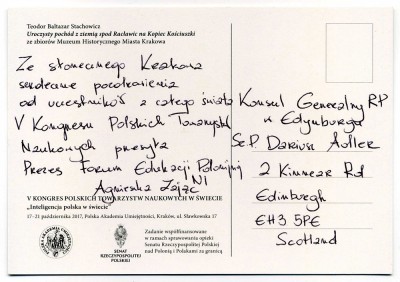 Teodor Baltazar Stachowicz
Uroczysty pochód z ziemią spod Racławic na Kopiec Kościuszki
ze zbiorów Muzeum Historycznego Miasta Krakowa
Ze słonecznego Krakowa
serdeczne pozdrowienia
od uczestników z całego świata
V Kongresu Polskich Towarzystw
Naukowych przesyła
Prezes Forum Edukacji Polonijnej
Agnieszka Zając
Konsul Generalny RP
w Edynburgu
Sz.P. Dariusz Adler
2 Kinnear Rd
Edinburgh
EH3 5PE
Scotland
V KONGRES POLSKICH TOWARZYSTW NAUKOWYCH W ŚWIECIE
„Inteligencja polska w świecie”
17–21 października 2017, Polska Akademia Umiejętności, Kraków, ul. Sławkowska 17
SENAT
RZECZYPOSPOLITEJ
POLSKIEJ
Zadanie współfinansowane
w ramach sprawowania opieki
Senatu Rzeczypospolitej Polskiej
nad Polonią i Polakami za granicą